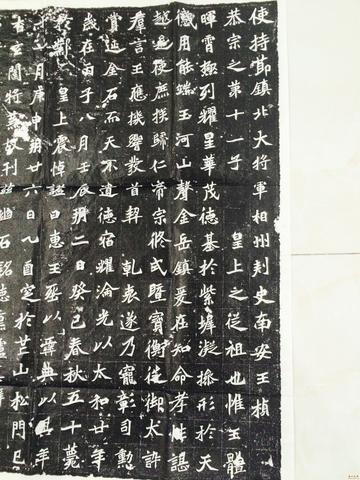 使持節鎮北大將軍相州刺史南安王楨
恭宗之第十一子 皇上之從祖也惟王體
暉霄極列耀星華茂德基於紫墀凝操形於天
儆用能端玉河山聲金岳鎮爰在知命孝性諶
越是使庶族歸仁帝宗攸式暨寶衡徙御大訊
群言王應機響發首契 乾衷遂乃寵彰司勳
賞延金石而天不遺德宿耀淪光以太和廿年
歲在丙子八月壬辰朔二日癸巳春秋五十薨
於鄴 皇上震悼諡曰惠王葬以彝典以其年
十一月庚申朔廿六日乙酉窆於芒山松門已
杳玄闥將蕪故刊茲幽石銘德熏壚